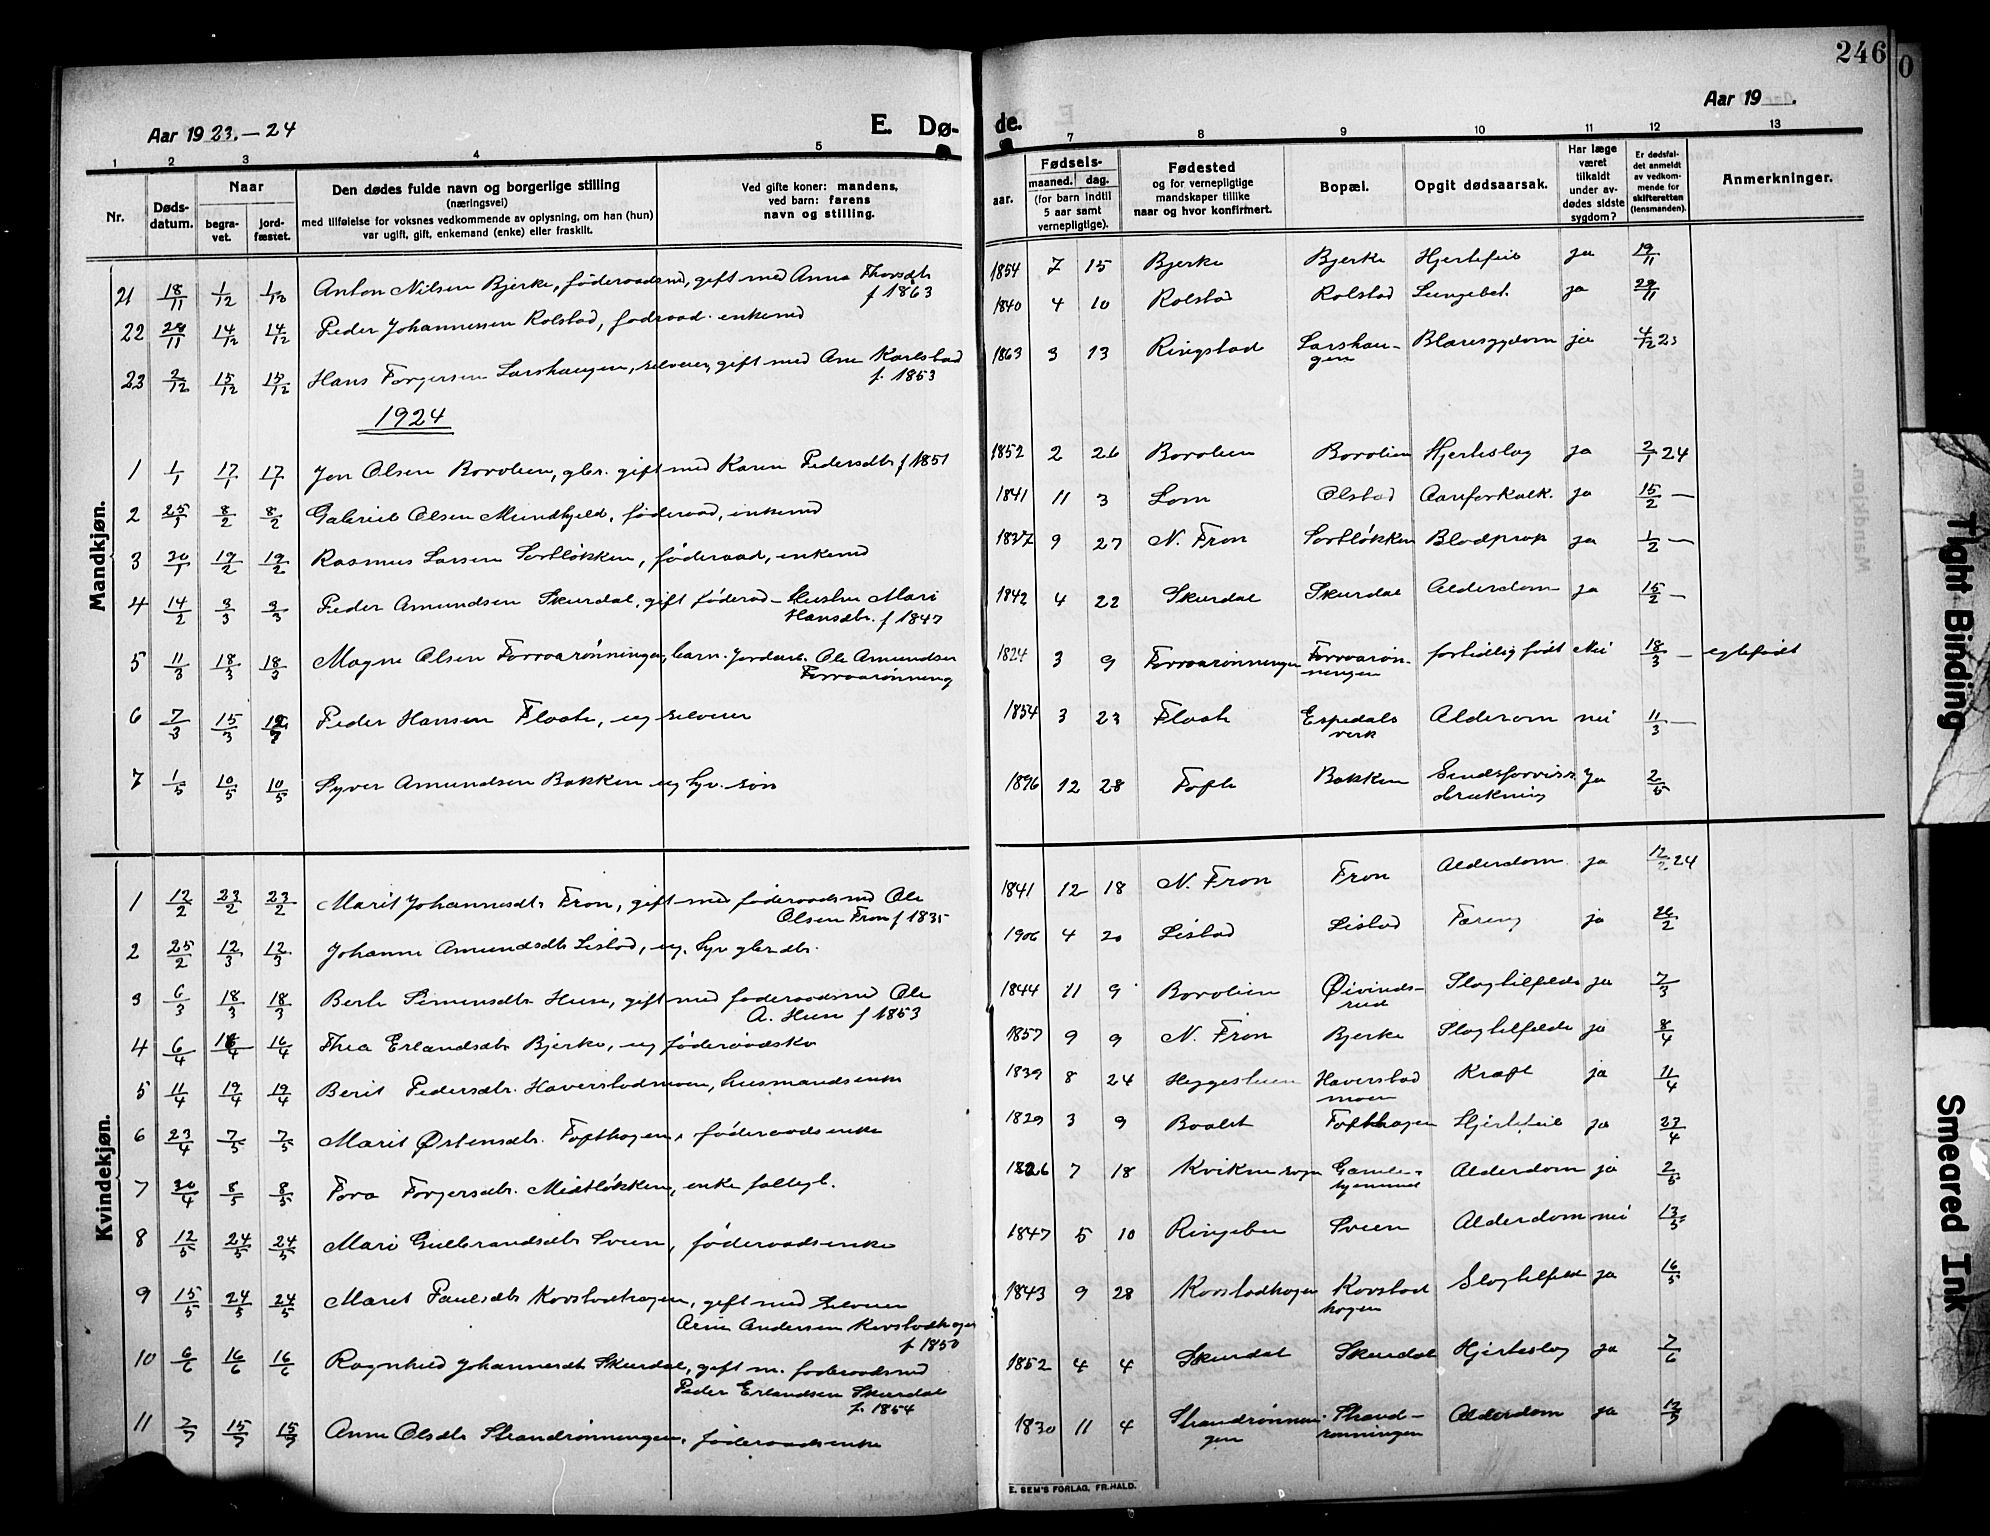 246
0
Aar 1923.–24
E. Dø-
de.
Aar 19 .
1 2 3 4 5 7 8 9 10 11 12 13
Nr.
Døds-
datum.
Naar
begra-
vet.
jord-
fæstet.
Den dødes fulde navn og borgerlige stilling
(næringsvei)
med tilføielse for voksnes vedkommende av oplysning, om han (hun)
var ugift, gift, enkemand (enke) eller fraskilt.
Ved gifte koner: mandens,
ved barn: farens
navn og stilling.
aar.
Fødsels-
maaned. dag.
(for barn indtil
5 aar samt
vernepligtige).
Fødested
og for vernepligtige
mandskaper tillike
naar og hvor konfirmert.
Bopæl.
Opgit dødsaarsak.
Har læge
været
tilkaldt
under av-
dødes sidste
sygdom?
Er dødsfal-
det anmeldt
av vedkom-
mende for
skifteretten
(lensmanden).
Anmerkninger.
Mandkjøn.
21 18/11 1/12 1/12 Anton Nilsen Bjerke, føderaadsmd, gift med Anna Thorsdtr f 1863 1854 7 15 Bjerke Bjerke Hjertefeil ja 19/11
22 28/11 14/12 14/12 Peder Johannessen Rolstad, fødraad. enkemd 1840 4 10 Rolstad Rolstad Lungebet. ja 29/11
23 2/12 15/12 15/12 Hans Torgersen Larshaugen, selveier, gift med Ane Karlstad f. 1853 1863 3 13 Ringstad Larshau-
gen Blæresygdom ja 4/12 23
1924
1 1/1 17/1 17/1 Jon Olsen Borolien, gbr. gift med Karen Pedersdtr f 1851 1852 2 26 Borolien Borolien Hjerteslag ja 2/1 24
2 25/1 8/2 8/2 Gabriel Olsen Mundhjeld, føderaad, enkemd 1841 11 3 Lom Olstad Aareforkalk. ja 15/2 –
3 30/1 19/2 19/2 Rasmus Larsen Sortløkken, føderaad, enkemd 1837 9 27 N. Fron Sortløkken Blodprop ja 1/2 –
4 14/2 3/3 3/3 Peder Amundsen Skurdal, gift føderaad – Hustru Mari
Hansdtr. f 1847 1842 4 22 Skurdal Skurdal Alderdom ja 15/2 –
5 11/3 18/3 18/3 Magne Olsen Forrarønningen, barn. Jordarb. Ole Amundsen
Forrarønning 1824 3 9 Forrarønningen Forrarøn-
ningen fortidlig født Nei 18/3 – egtefødt
6 7/3 15/3 Peder Hansen Flaate, ug selveier 1854 3 23 Flaate Espedals
verk Alderom nei 11/3 –
7 1/5 10/5 10/5 Syver Amundsen Bakken ug Gbr. søn 1896 12 28 Tofte Bakken Sindsforvirr.
drukning Ja 2/5
Kvindekjøn.
1 12/2 23/2 23/2 Marit Johannesdtr Fron, gift med føderaadsmd Ole
Olsen Fron f 1835 1841 12 18 N. Fron Fron Alderdom ja 12/2 24
2 25/2 12/3 12/3 Johanne Amundsdtr Listad, ug. Gbr. 1906 4 20 Listad Listad Tæring ja 26/2
3 6/3 18/3 18/3 Berte Simensdtr Hune, gift med føderaadsmd Ole
A. Hune f 1853 1844 11 9 Borolien Øivinds-
rud Slagtilfelde ja 7/3
4 6/4 16/4 16/4 Thea Erlandsdtr Bjerke, ug føderaadsko 1857 9 9 N. Fron Bjerke Slagtilfelde ja 8/4
5 11/4 19/4 19/4 Berit Pedersdtr. Haverstadmoen, husmandsenke 1839 8 24 Heggeslien Haverstad
moen Kræft ja 11/4
6 23/4 7/5 7/5 Marit Østensdtr. Tofthagen, føderaadsenke 1829 3 9 Baalst Tofthagen Hjertefeil ja 23/4
7 30/4 8/5 8/5 Tora Torgersdtr. Midtløkken, enke fattigl. 1826 7 18 Kvikne sogn Gamle-
hjemmet Alderdom ja 2/5
8 12/5 24/5 24/5 Mari Gulbrandsdtr Sveen, føderaadsenke 1847 5 10 Ringebu Sveen Alderdom nei 13/5
9 15/5 24/5 24/5 Marit Paulsdtr Korstadhagen, gift med Selveier
Arne Andersen Korstadhagen
f 1850 1843 9 28 Korstadhagen Korstad
hagen Slagtilfelde ja 16/5
10 6/6 16/6 16/6 Ragnhild Johannesdtr Skurdal, gift m. føderaadsmd
Peder Erlandsen Skurdal
f. 1854 1852 4 4 Skurdal Skurdal Hjerteslag ja 7/6
11 2/7 15/7 15/7 Anne Olsdtr Strandrønningen, føderaadsenke 1830 11 4 Strandrønnin-
gen Strand-
rønningen Alderdom ja
E. SEM'S FORLAG, FR.HALD.
Tight Binding
Smeared Ink